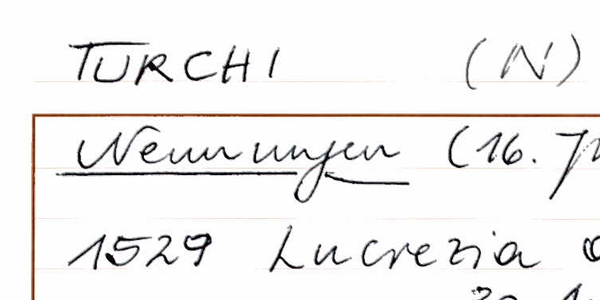 TURCHI (N)
Nennungen (16.
1529 Lucrezia